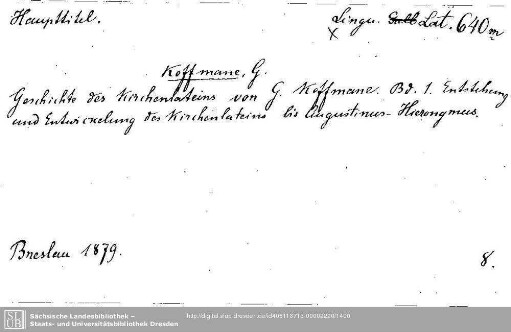 Haupttitel.
Lingu. Lat. 640m
x
Koffmane, G.
Geschichte des Kirchenlateins von G. Koffmane. Bd. 1. Entstehung
und Entwickelung des Kirchenlateins bis Augustinus-Hieronymus.
Breslau 1879. 8.
Sächsische Landesbibliothek –
Staats- und Universitätsbibliothek Dresden